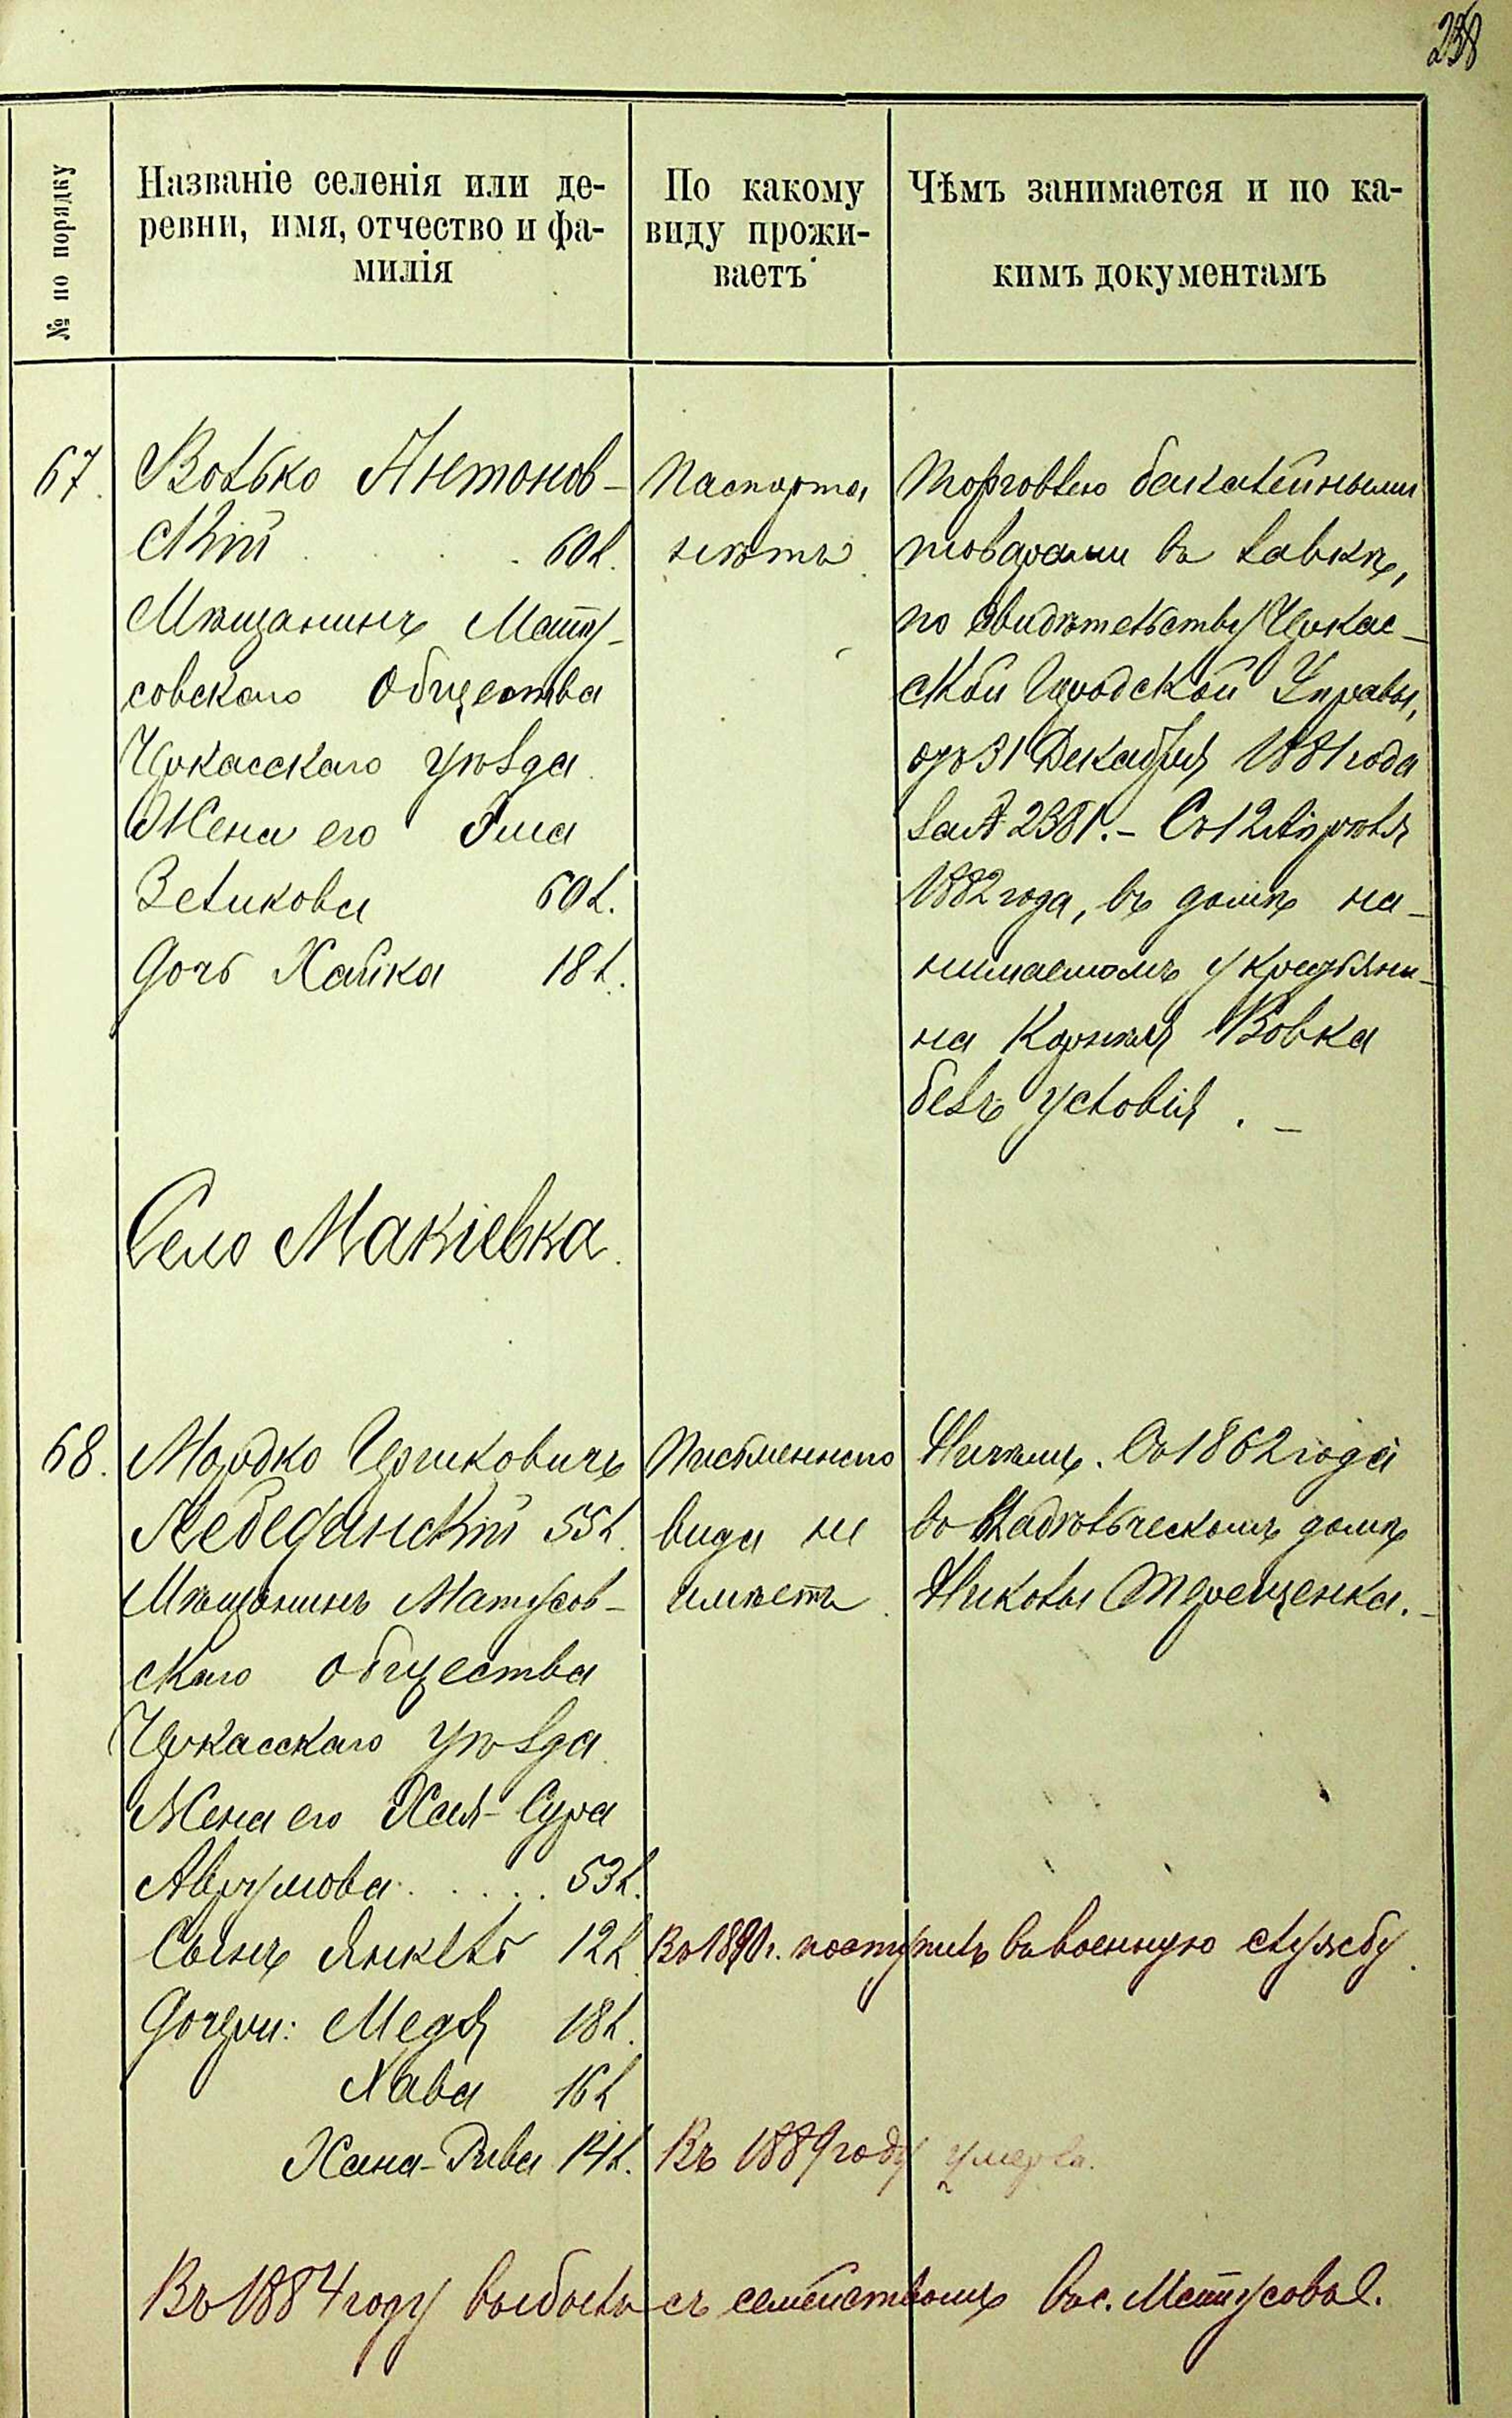 238
№ по порядку
Названіе селенія или де-
ревни, имя, отчество и фа-
милія
По какому
виду прожи-
ваетъ
Чѣмъ занимается и по ка-
кимъ документамъ
67.
Волько Антонов-
скій . . . 60 л.
Мѣщанинъ Мату-
совскаго Общества
Черкасскаго уѣзда.
Жена его Эта
Зеликова 60 л.
Дочь Хайка 18 л.
Паспорта
нѣтъ.
Торговлею бакалейными
товарами въ лавкѣ,
по свидѣтельству Черкас-
ской Городской Управы,
отъ 31 Декабря 1881 года
за № 2381. – Съ 12 Апрѣля
1882 года, въ домѣ на-
нимаемомъ у крестьяни-
на Корнѣя Вовка
безъ условія. –
Село Макіевка.
68.
Мордко Ицковичъ
Лебединскій 55 л.
Мѣщанинъ Матусов-
скаго общества
Черкасскаго уѣзда.
Жена его Хая-Сура
Аврумова . . . . 53 л.
Сынъ Янкель 12 л.
Дочери: Медя 18 л.
Хава 16 л.
Хана-Рива 14 л.
Письменнаго
вида не
имѣетъ.
Ничѣмъ. Съ 1862 года
во владѣльческомъ домѣ
Николы Терещенка. –
Въ 1890 г. поступилъ въ военную службу.
Въ 1889 году умерла.
Въ 1884 году выбылъ съ семействомъ въ с. Матусовъ.